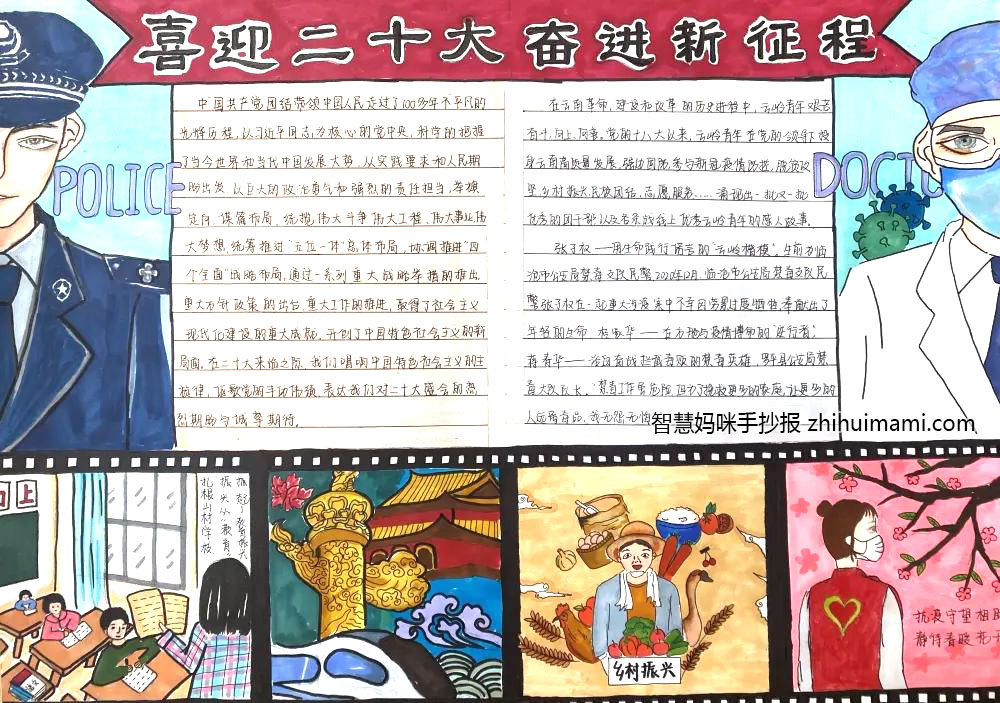 喜迎二十大 奋进新征程
POLICE
DOCTO
中国共产党团结带领中国人民走过了100多年不平凡的
光辉历程，以习近平同志为核心的党中央，科学的把握
了当今世界和当代中国发展大势，从实践要求和人民期
盼出发，以巨大的政治勇气和强烈的责任担当，举旗
定向、谋篇布局，统揽伟大斗争伟大工程，伟大事业伟
大梦想，统筹推进"五位一体"总体布局，协调推进"四
个全面"战略布局，通过一系列重大战略举措的推出，
重大方针政策的出台，重大工作的推进，取得了社会主义
现代化建设的重大成就，开创了中国特色社会主义的新
局面，在二十大来临之际，我们唱响中国特色社会主义的主
旋律，讴歌党的丰功伟绩，表达我们对二十大盛会的热
烈期盼与诚挚期待。
在云南革命，建设和改革的历史进程中，云岭青年
有十八大以来，云岭青年在党的领导下投
身云南高质量发展、强边固防、参与新冠疫情防控，脱贫攻
坚乡村振兴民族团结，志愿服务……涌现出一批又一批
优秀的团干部以及各条战线上优秀云岭青年的感人故事。
张子权——用生命践行诺言的"云岭楷模"，生前为临
沧市公安局禁毒支队民警，2020年12月，临沧市公安局禁毒支队民
警张子权在一起重大涉疫案中不幸因劳累过度牺牲，奉献出了
年轻的生命，
华——在方地与疫情搏命的"逆行者"，
蒋春华——活跃在战斗
禁毒英雄，
县公安局禁
毒大队队长，"禁毒工作虽危险，但为了挽救更多的家庭，让更多的
人远离毒品，我无怨无悔
智慧妈咪手抄报 zhihuimami.com
向上
扎根山村学校
振兴从"教育"
语文
乡村振兴
抗疫守望相
静待春暖花